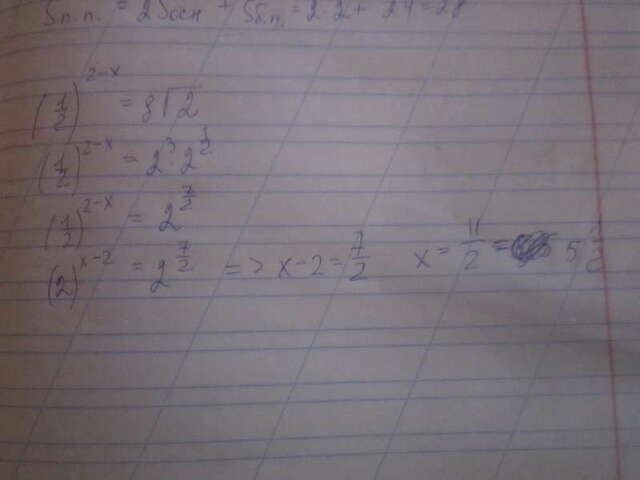 = 2Sосн + Sбп = 2·2 + 24 = 28
(1/2)^{2-x} = 8√2
(1/2)^{2-x} = 2^3·2^{1/2}
(1/2)^{2-x} = 2^{7/2}
(2)^{x-2} = 2^{7/2} => x-2 = 7/2 x = 11/2 = 5 1/2